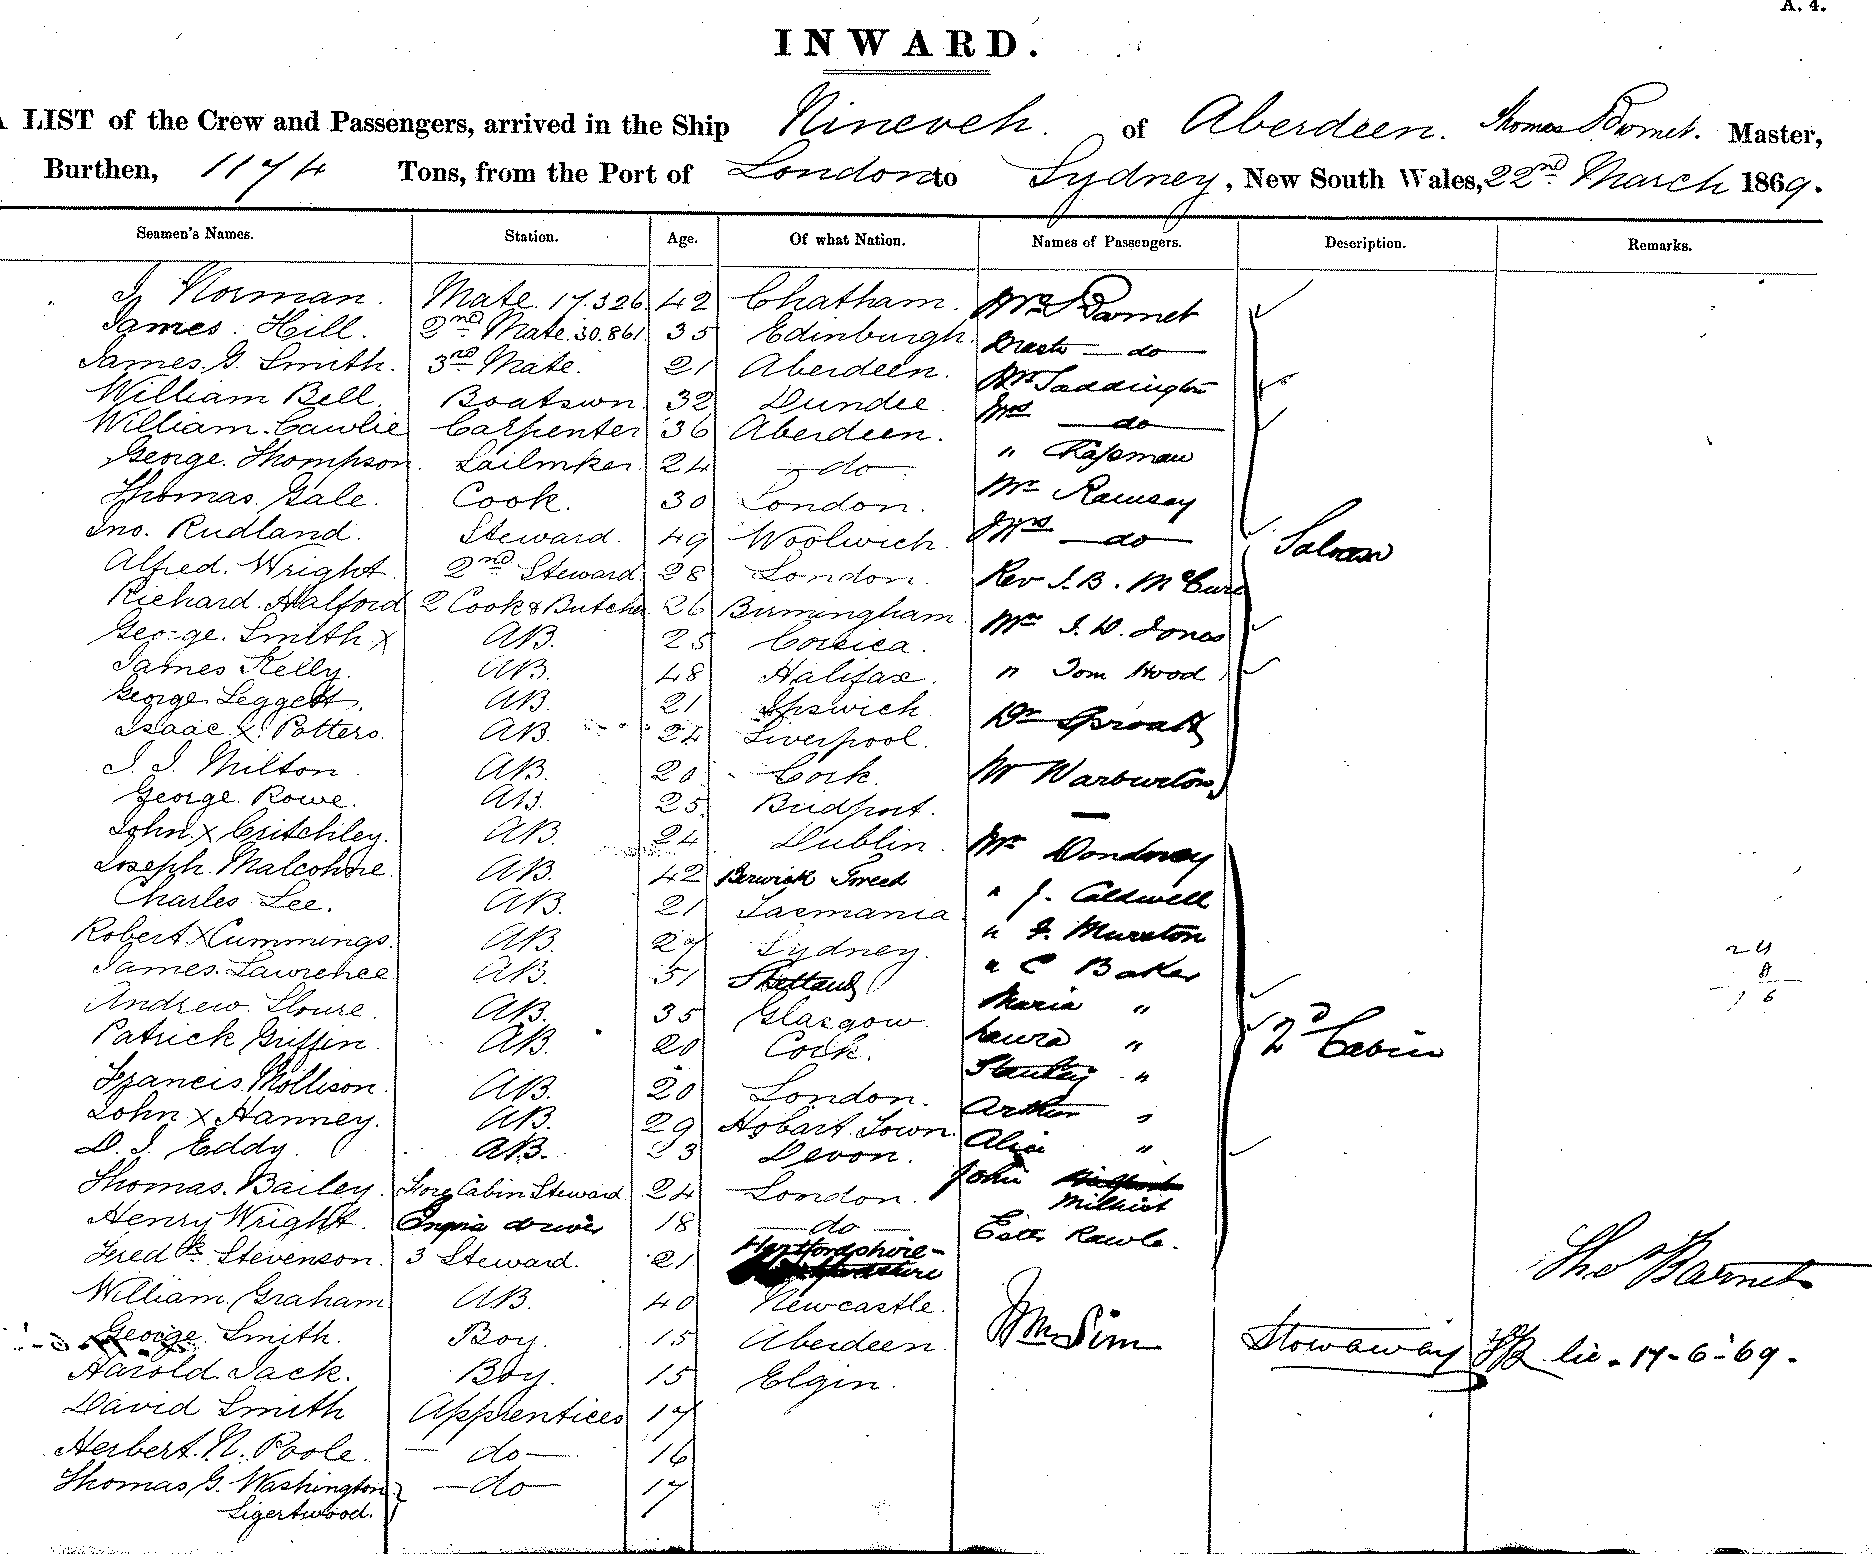 A. 4.
INWARD.
A LIST of the Crew and Passengers, arrived in the Ship Nineveh. of Aberdeen. Thomas Barnet. Master,
Burthen, 1174 Tons, from the Port of London to Sydney, New South Wales, 22nd March 1869.
Seamen's Names. Station. Age. Of what Nation. Names of Passengers. Description. Remarks.
J. Norman. Mate. 17.326 42 Chatham. Mrs Barnet
James. Hill. 2nd Mate. 30.861 35 Edinburgh. do
James. G. Smith. 3rd Mate. 21 Aberdeen. Mr Saddington
William Bell. Boatswn. 32 Dundee. Mrs do
William. Cawlie Carpenter 36 Aberdeen. " Chapman
George. Thompson. Sailmker. 24 do Mr Ramsay
Thomas. Gale. Cook. 30 London. Mrs do
Jno. Rudland. Steward. 49 Woolwich. Saloon
Alfred. Wright. 2nd Steward 28 London. Rev J. B. McCure
Richard. Halford 2 Cook & Butcher 26 Birmingham. Mr J. W. Jones
George. Smith X AB. 25 Corsica.
James Kelly. AB. 48 Halifax. " Tom Hood
George Leggett. AB. 21 Ipswich Dr Sproatt
Isaac X Potters. AB. 24 Liverpool.
J. J. Milton. AB. 20 Cork. Mr Warburton
George. Rowe. AB. 25. Bridport.
John X Critchley. AB. 24 Dublin. Mr
Joseph. Malcolme. AB. 42 Berwick Tweed
Charles Lee. AB. 21 Tasmania " J. Caldwell
Robert X Cummings. AB. 27 Sydney. " J. Mureton
James. Lawrence AB. 31 Shetland " C Baker
24
8
16
Andrew. AB. 35 Glasgow. Maria "
Patrick Griffin. AB. 20 Cork. Laura " 2d Cabin
Francis Mollison. AB. 20 London. Stanley "
John X Hanney. AB. 29 Hobart Town. Arthur "
D. J. Eddy. AB. 23 Devon. Alice "
Thomas. Bailey. Fore Cabin Steward 24 London. John Milhist
Henry Wright. Engine driver 18 do Rawle.
Fredk Stevenson. 3 Steward. 21 Hertfordshire
Thos Barnet
William. Graham AB. 40 Newcastle.
George. Smith. Boy. 15 Aberdeen. Wm Sim Stowaway lic. 17-6-69.
Harold. Jack. Boy. 15 Elgin.
David Smith Apprentices 17
Herbert. N. Poole. do 16
Thomas G. Washington do 17
Ligertwood.